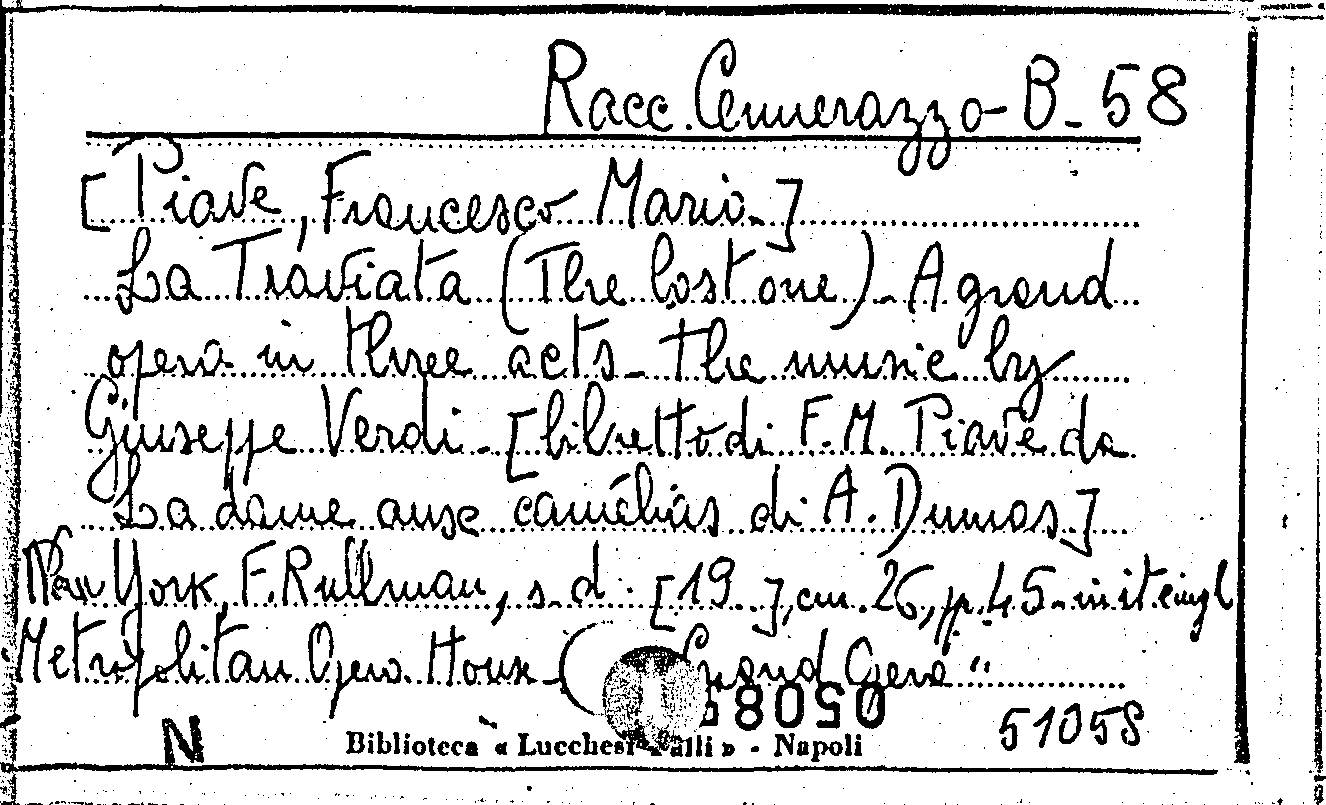 Racc. Cennerazzo - B - 58
[Piave, Francesco Mario.]
La Traviata (The lost one). A grand
opera in three acts - the music by
Giuseppe Verdi - [libretto di F. M. Piave da
La dame aux camélias di A. Dumas]
New York, F. Rullman, s. d. [19..], cm. 26, pp. 45 - in it e ingl
Metropolitan Opera House - ( Grand Opera"
0508
51058
N
Biblioteca « Lucchesi Palli » - Napoli